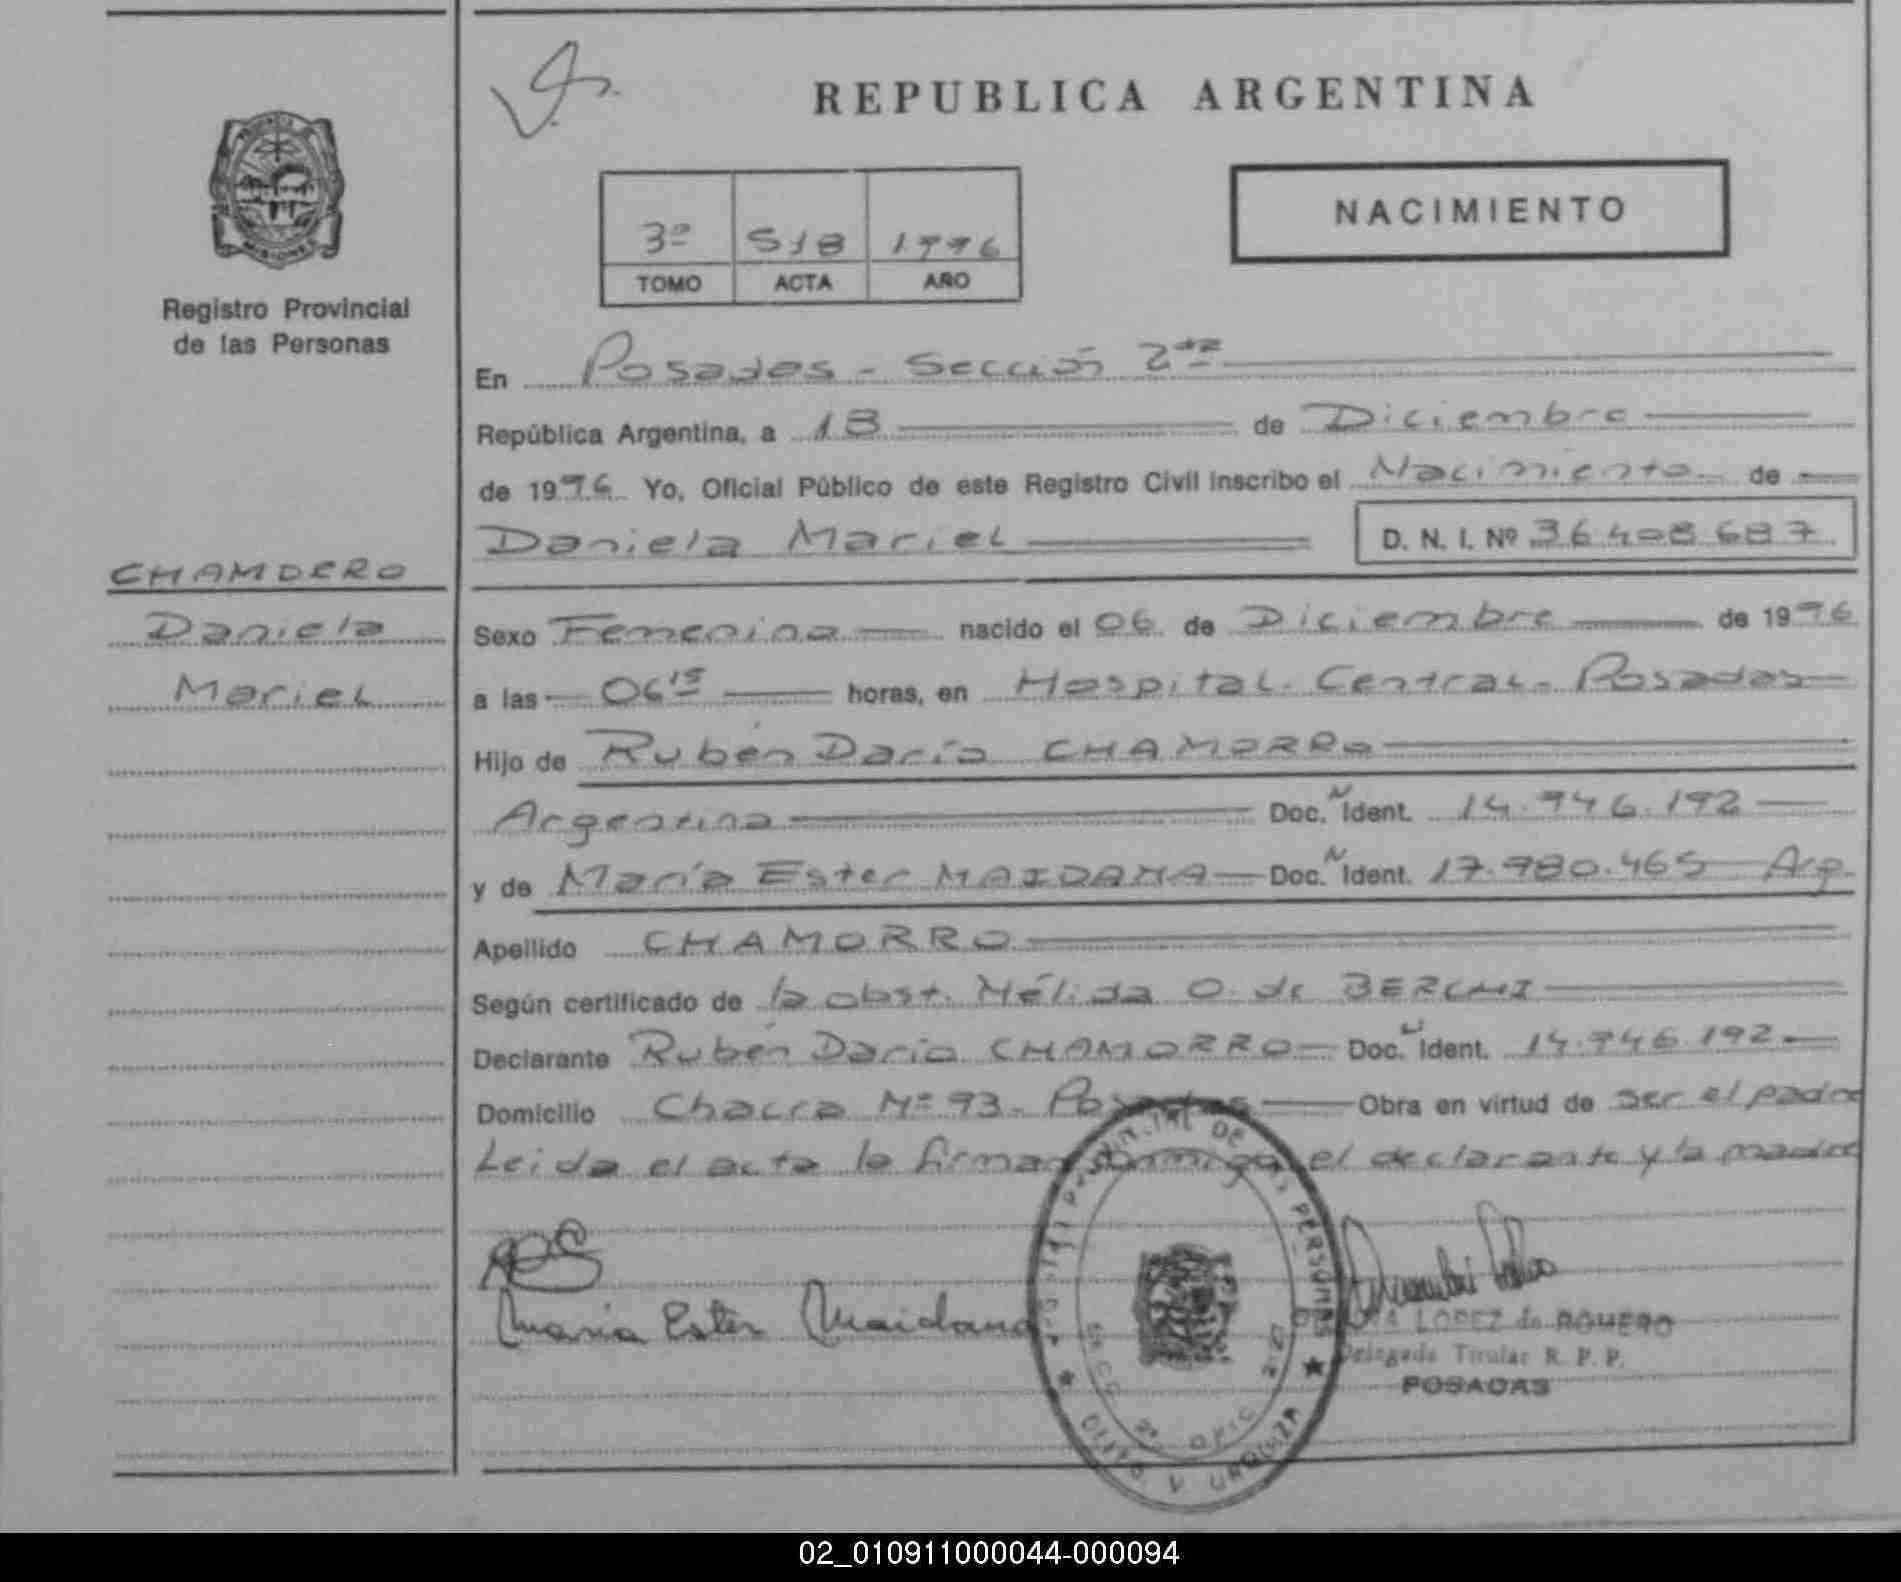 REPUBLICA ARGENTINA
NACIMIENTO
3º 518 1996
TOMO ACTA AÑO
Registro Provincial
de las Personas
En Posadas - Sección 2da
República Argentina, a 18 de Diciembre
de 1996 Yo, Oficial Público de este Registro Civil inscribo el Nacimiento de
Daniela Mariel D. N. I. Nº 36408687
CHAMORRO
Daniela
Mariel
Sexo Femenina nacido el 06 de Diciembre de 1996
a las 06 15 horas, en Hospital Central - Posadas
Hijo de Rubén Darío CHAMORRO
Argentina Doc. N Ident. 14.946.192
y de María Ester MAIDANA Doc. N Ident. 17.980.465 Arg.
Apellido CHAMORRO
Según certificado de la obst. Nélida O. de
Declarante Rubén Dario CHAMORRO Doc. Ident. 14.946.192.
Domicilio Chacra Nº 93 - Posadas Obra en virtud de ser el padre
Leida el acta la firman conmigo el declarante y la madre
Maria Ester Maidana
LOPEZ de ROMERO
Delegada Titular R. P. P.
POSADAS
02_010911000044-000094